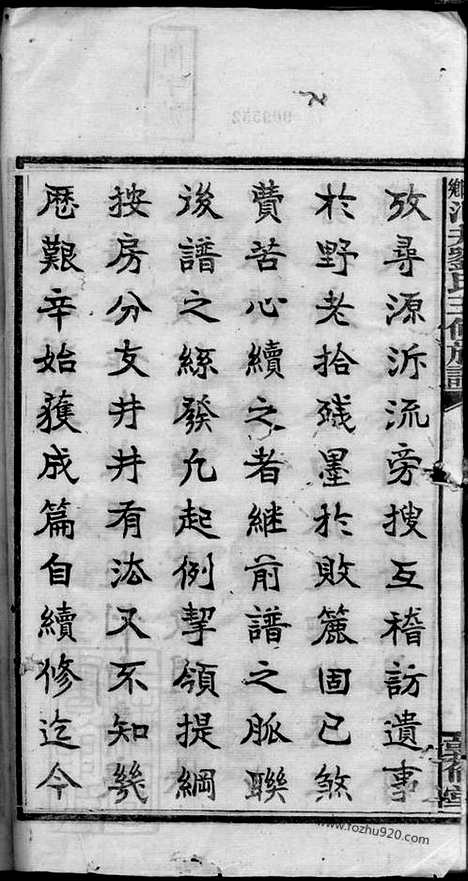 攷尋源泝流旁搜互稽訪遺事
於野老拾殘墨於敗簏固已煞
費苦心續之者継前譜之脈聯
後譜之綵發凢起例挈領提綱
按房分支井井有法又不知幾
歷艱辛始獲成篇自續修迄今
劉氏三修族譜
www.fozhu920.com